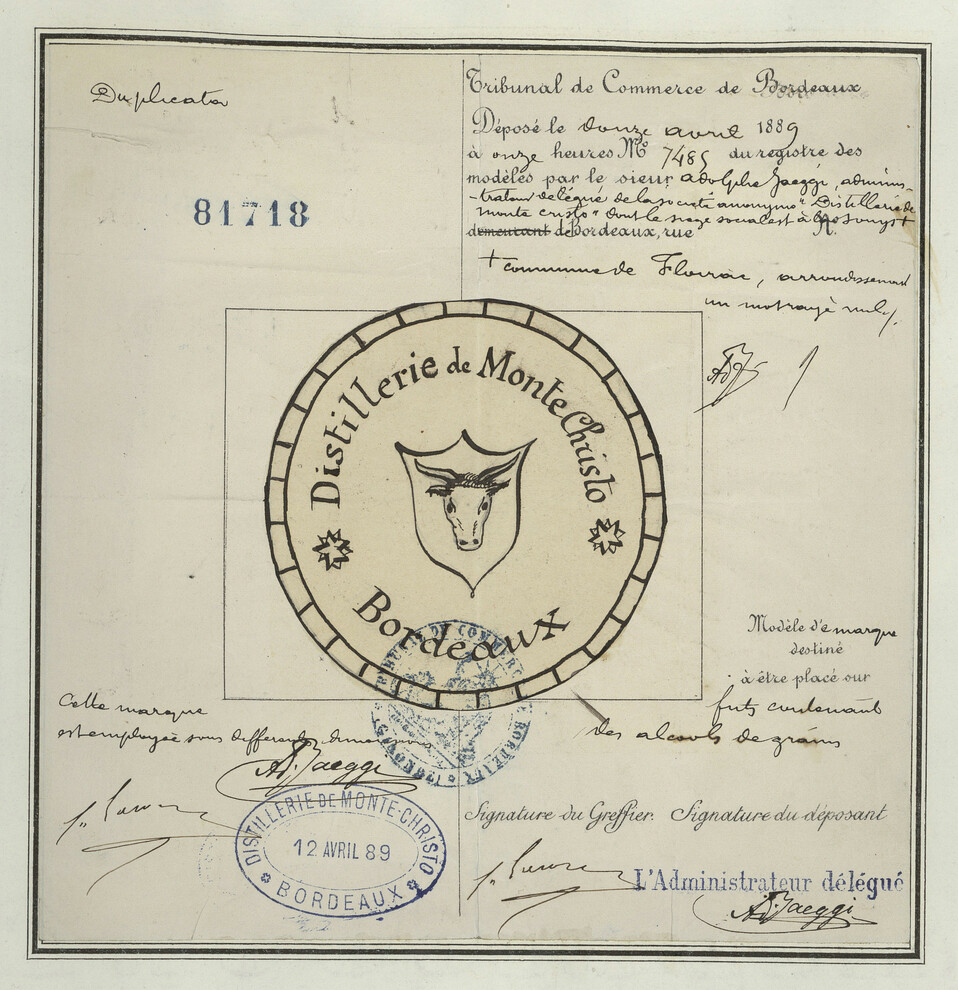 Duplicata
81718
Tribunal de Commerce de Bordeaux
Déposé le douze avril 1889
à onze heures No 7485 du registre des
modèles par le sieur Adolphe Jaeggi, adminis-
-trateur délégué de la société anonyme "Distillerie de
monte cristo" dont le siège social est à +
demeurant de Bordeaux, rue N.
+ commune de Floirac, arrondissement
un mot rayé nul
Distillerie de Monte Christo
Bordeaux
TRIBUNAL DE COMMERCE
BORDEAUX
Modèle de marque
destiné
à être placé sur
futs contenant
des alcools de grains
Cette marque
est employée sous differentes dimensions
Ad. Jaeggi
DISTILLERIE DE MONTE-CHRISTO
12 AVRIL 89
BORDEAUX
Signature du Greffier. Signature du déposant
L'Administrateur délégué
Ad. Jaeggi